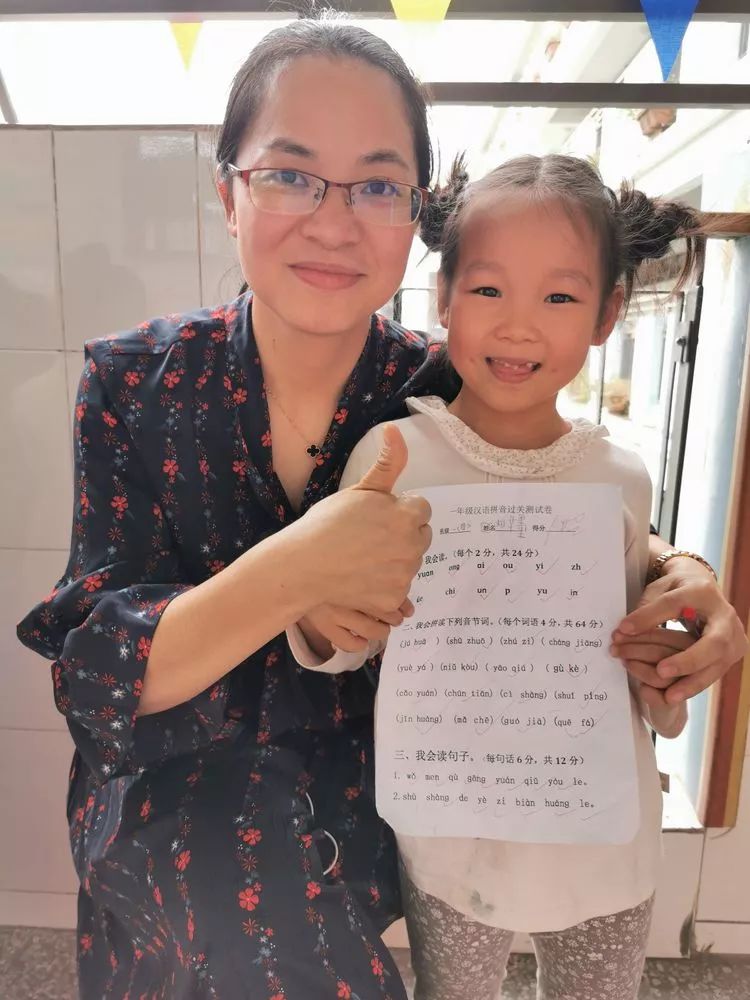 一年级汉语拼音过关测试卷
班级 姓名 得分
我会读。(每个2分,共24分)
yuan ong ai ou yi zh
ie chi un p yu in
二、我会拼读下列音节词。(每个词语4分,共64分)
(jú huā) (shū zhuō) (zhú zi) (cháng jiāng)
(yuè yá) (niǔ kòu) (yāo qiú) (gù kè)
(cǎo yuán) (chūn tiān) (cì shāng) (shuǐ píng)
(jīn huáng) (mǎ chē) (guó jiā) (quē fá)
三、我会读句子。(每句话6分,共12分)
1. wǒ men qù gōng yuán qiū yóu le。
2. shù shàng de yè zi biàn huáng le。